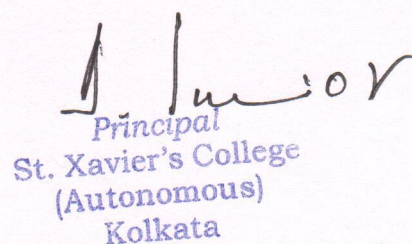 Principal
St. Xavier's College
(Autonomous)
Kolkata